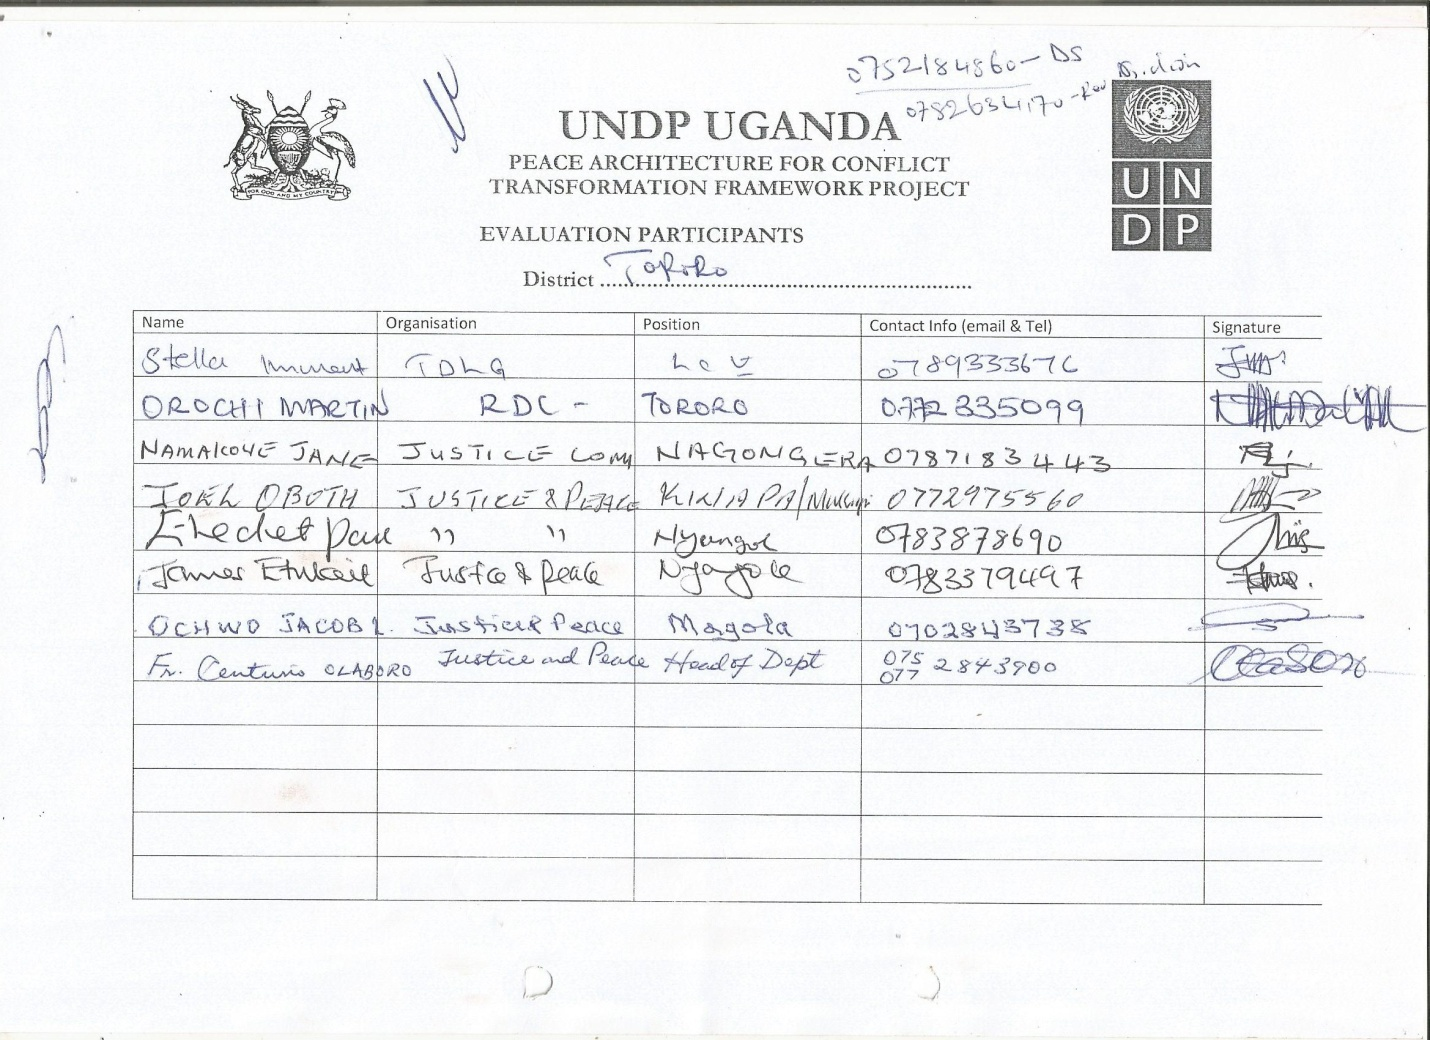 0752184860 - DS
0782634170 -
UNDP UGANDA
PEACE ARCHITECTURE FOR CONFLICT
TRANSFORMATION FRAMEWORK PROJECT
FOR GOD AND MY COUNTRY
UN
DP
EVALUATION PARTICIPANTS
District ... TORORO
Name Organisation Position Contact Info (email & Tel) Signature
Stella TDLG LC V 0789333676
OROCHI MARTIN RDC - TORORO 0772335099
NAMAKOYE JANE JUSTICE COM NAGONGERA 0787183443
JOEL OBOTH JUSTICE & PEACE 0772975560
" " 0783878690
James Justce & peace 0783379497
OCHWO JACOB Justice & Peace Magola 0702843738
Fr. Centurio OLABORO Justice and Peace Head of Dept 075 077 2843900